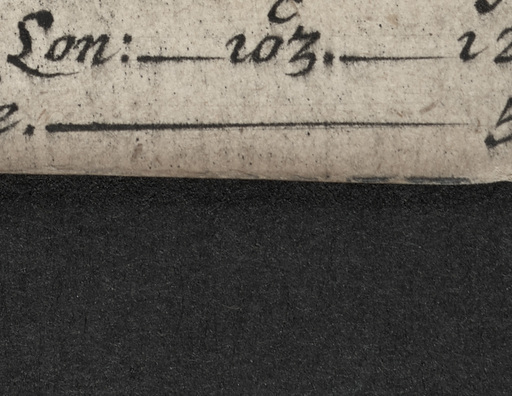 Lon: 103. 12
e. 5